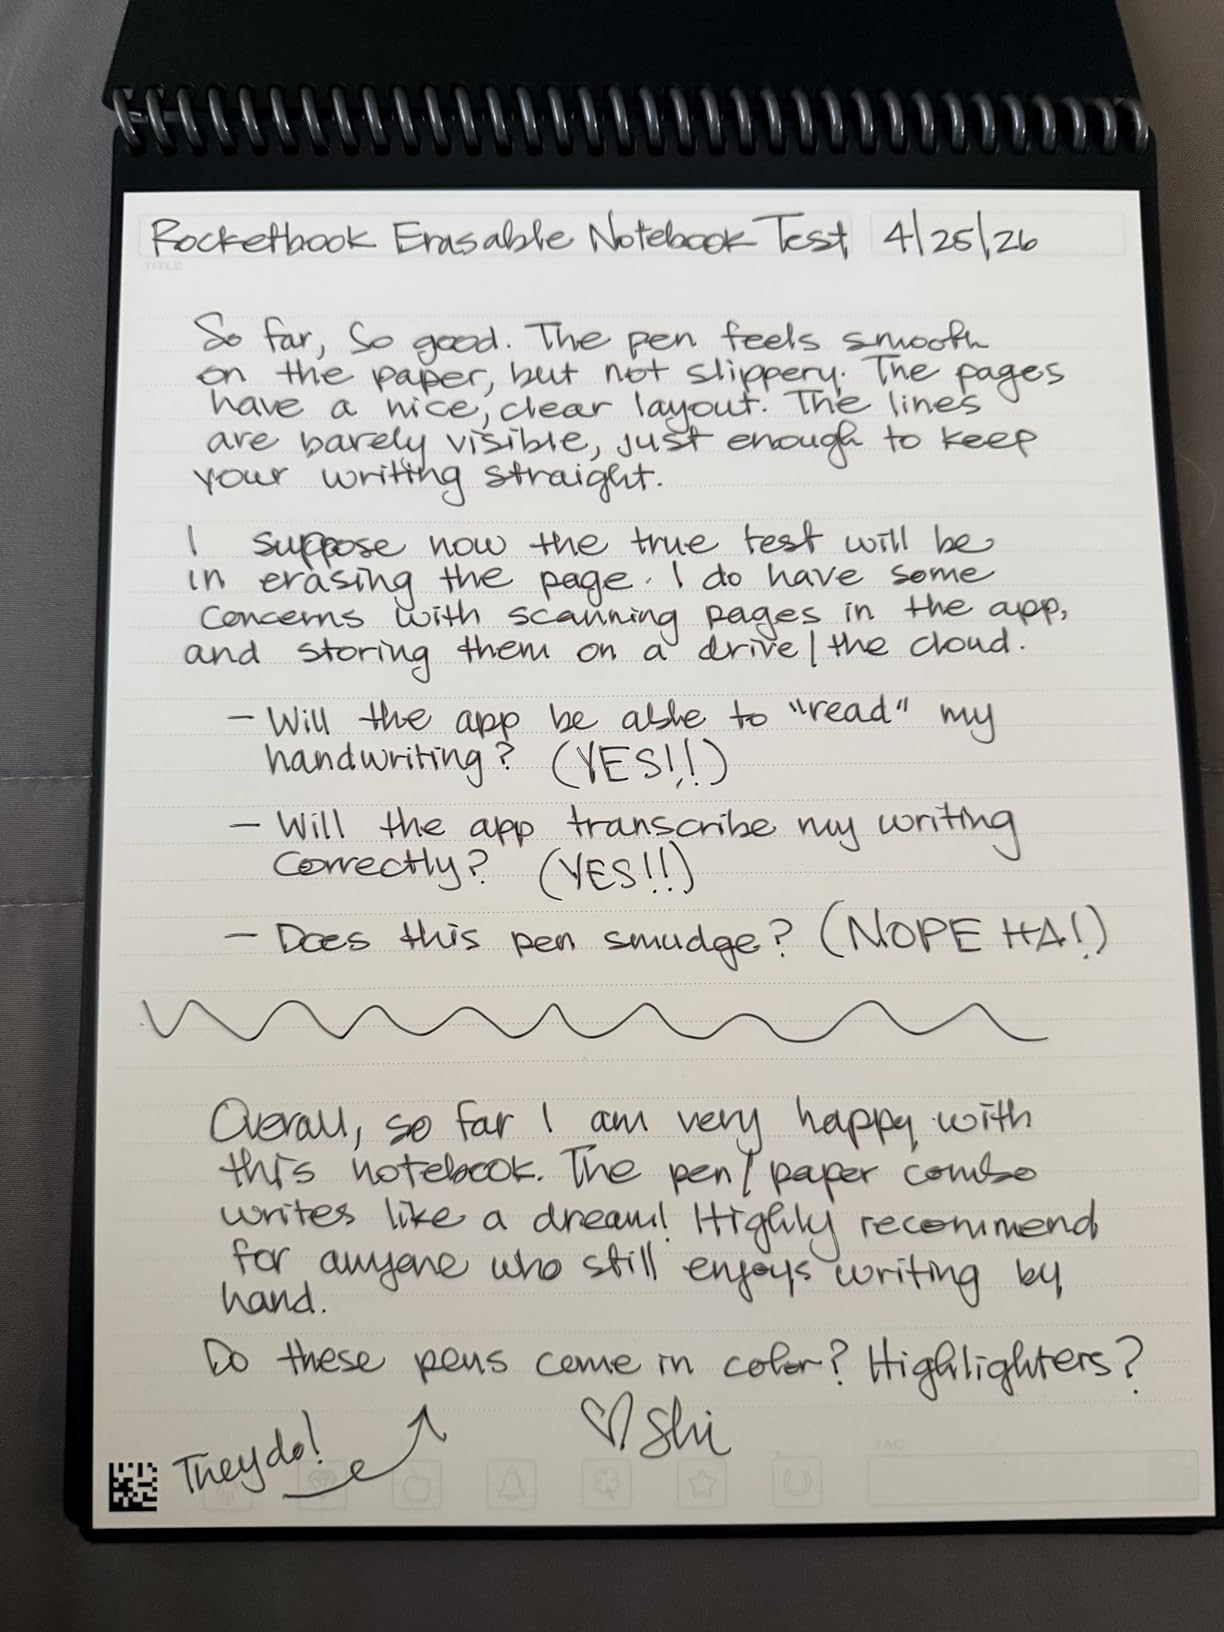 Rocketbook Erasable Notebook Test 4/25/26
TITLE
So far, So good. The pen feels smooth
on the paper, but not slippery. The pages
have a nice, clear layout. The lines
are barely visible, just enough to keep
your writing straight.
I suppose now the true test will be
in erasing the page. I do have some
concerns with scanning pages in the app,
and storing them on a drive/the cloud.
- Will the app be able to "read" my
handwriting? (YES!!)
- Will the app transcribe my writing
correctly? (YES!!)
- Does this pen smudge? (NOPE HA!)
Overall, so far I am very happy with
this notebook. The pen/paper combo
writes like a dream! Highly recommend
for anyone who still enjoys writing by
hand.
Do these pens come in color? Highlighters?
They do!
♡ Shi
TAG